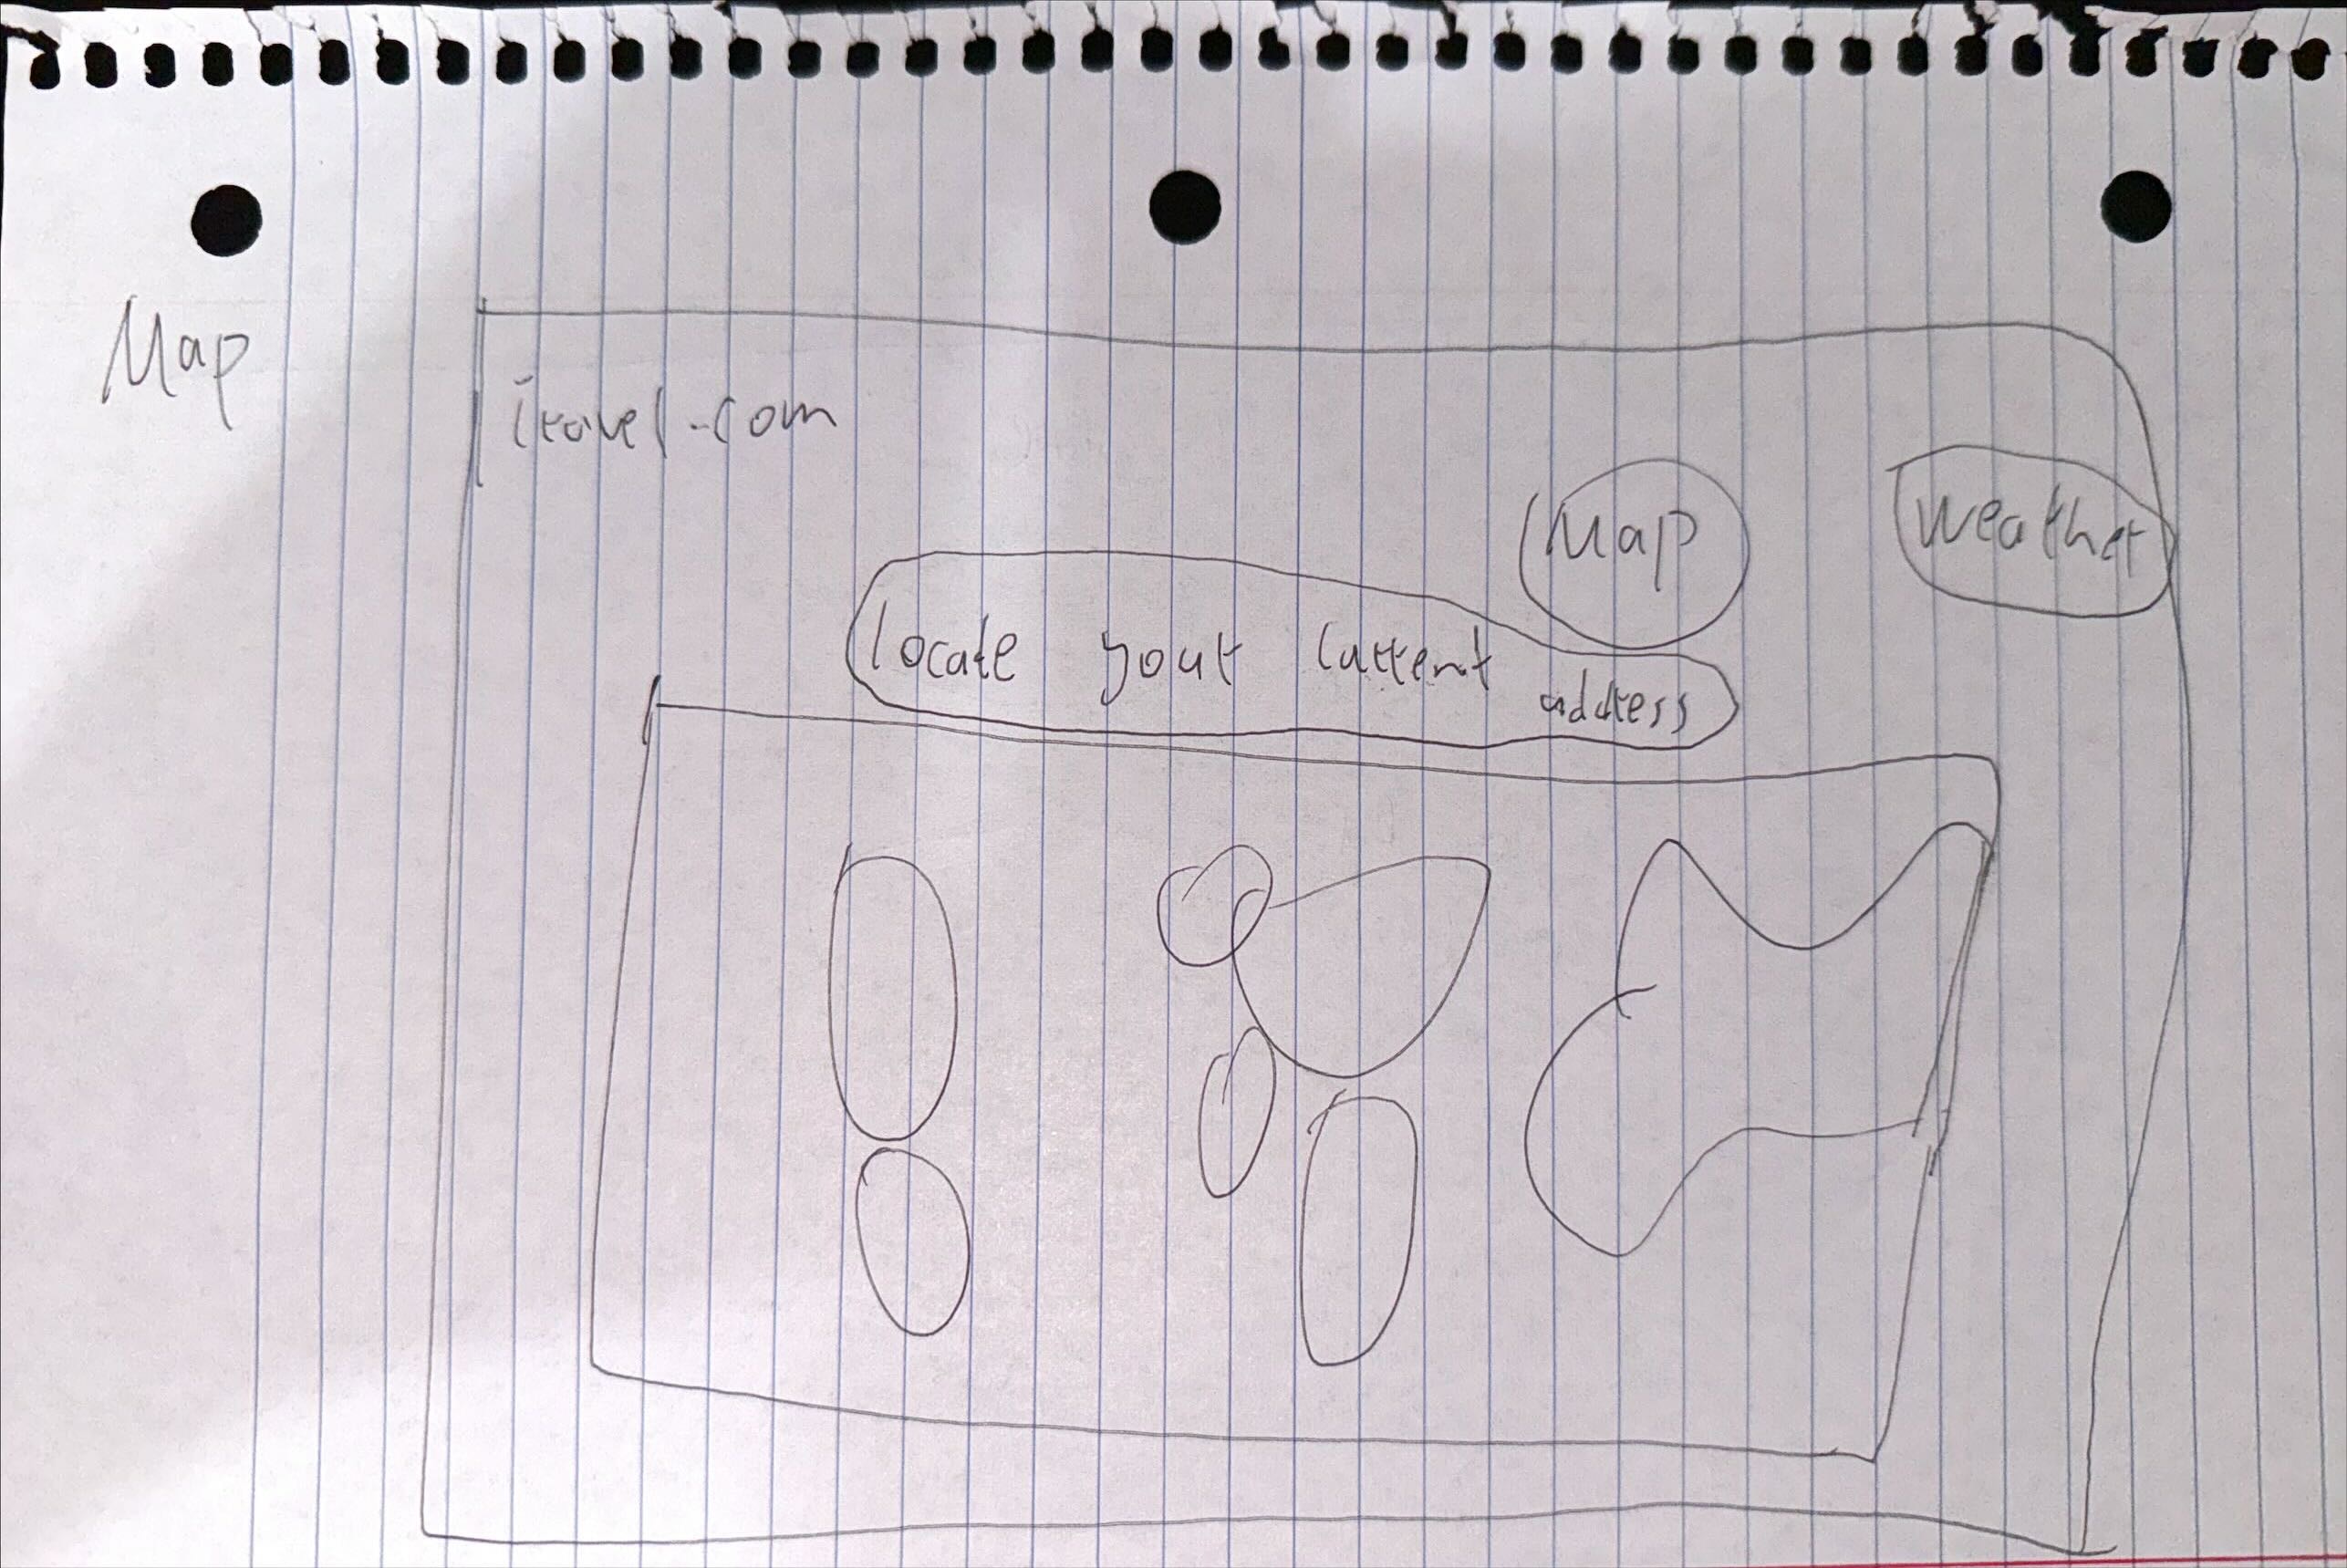 Map
itravel.com
Map
Weather
locate your current
address